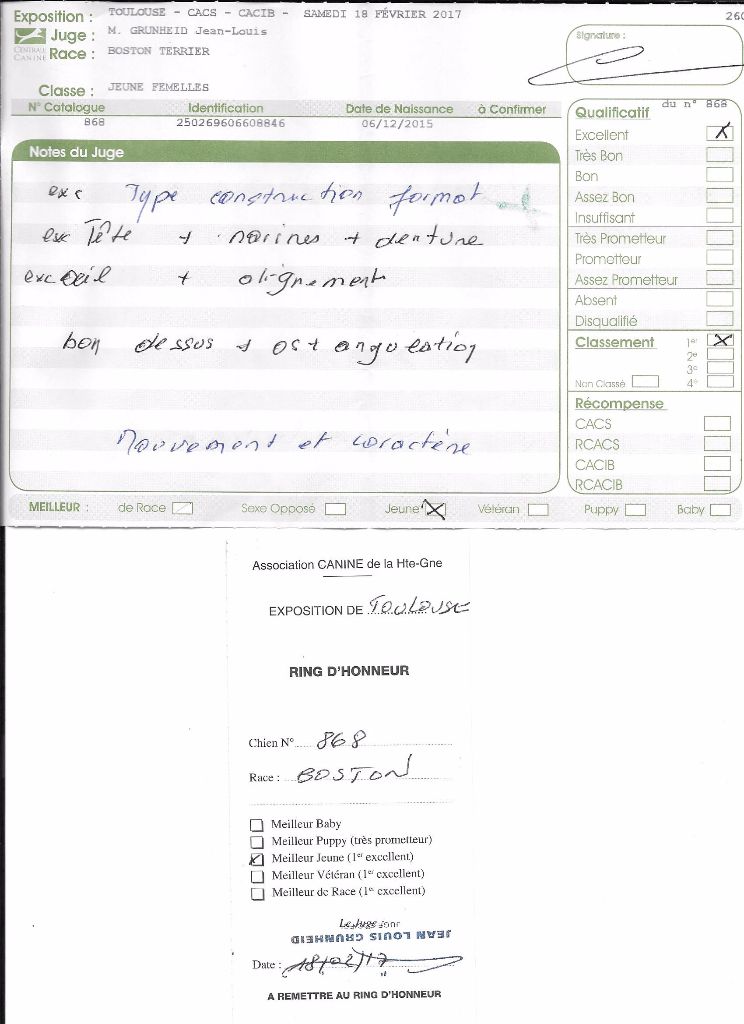 Exposition : TOULOUSE - CACS - CACIB - SAMEDI 18 FÉVRIER 2017
Juge : M. GRUNHEID Jean-Louis
CENTRALE CANINE
Race : BOSTON TERRIER
Classe : JEUNE FEMELLES
Signature :
N° Catalogue Identification Date de Naissance à Confirmer
868 250269606608846 06/12/2015
Notes du Juge
exc Type construction format
exc Tête + narines + denture
exc oeil + alignement
bon dessus + os + angulation
Mouvement et caractère
du n° 868
Qualificatif
Excellent X
Très Bon
Bon
Assez Bon
Insuffisant
Très Prometteur
Prometteur
Assez Prometteur
Absent
Disqualifié
Classement 1er X
2e
3e
Non Classé 4e
Récompense
CACS
RCACS
CACIB
RCACIB
MEILLEUR : de Race Sexe Opposé Jeune X Vétéran Puppy Baby
Association CANINE de la Hte-Gne
EXPOSITION DE TOULOUSE
RING D'HONNEUR
Chien N° 868
Race : BOSTON
Meilleur Baby
Meilleur Puppy (très prometteur)
Meilleur Jeune (1er excellent)
Meilleur Vétéran (1er excellent)
Meilleur de Race (1er excellent)
Le Juge
JEAN LOUIS GRUNHEID
Date : 18/02/17
A REMETTRE AU RING D'HONNEUR